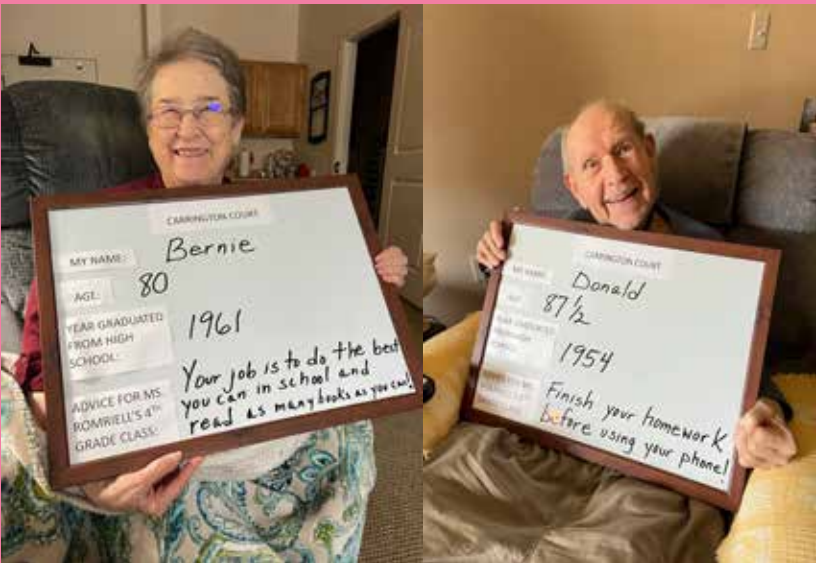 CARRINGTON COURT
MY NAME:
Bernie
AGE:
80
YEAR GRADUATED
FROM HIGH
SCHOOL:
1961
ADVICE FOR MS.
ROMRIELL'S 4TH
GRADE CLASS:
Your job is to do the best
you can in school and
read as many books as you can!
CARRINGTON COURT
MY NAME:
Donald
AGE:
87 1/2
YEAR GRADUATED
FROM HIGH
SCHOOL:
1954
Finish your homework
before using your phone!